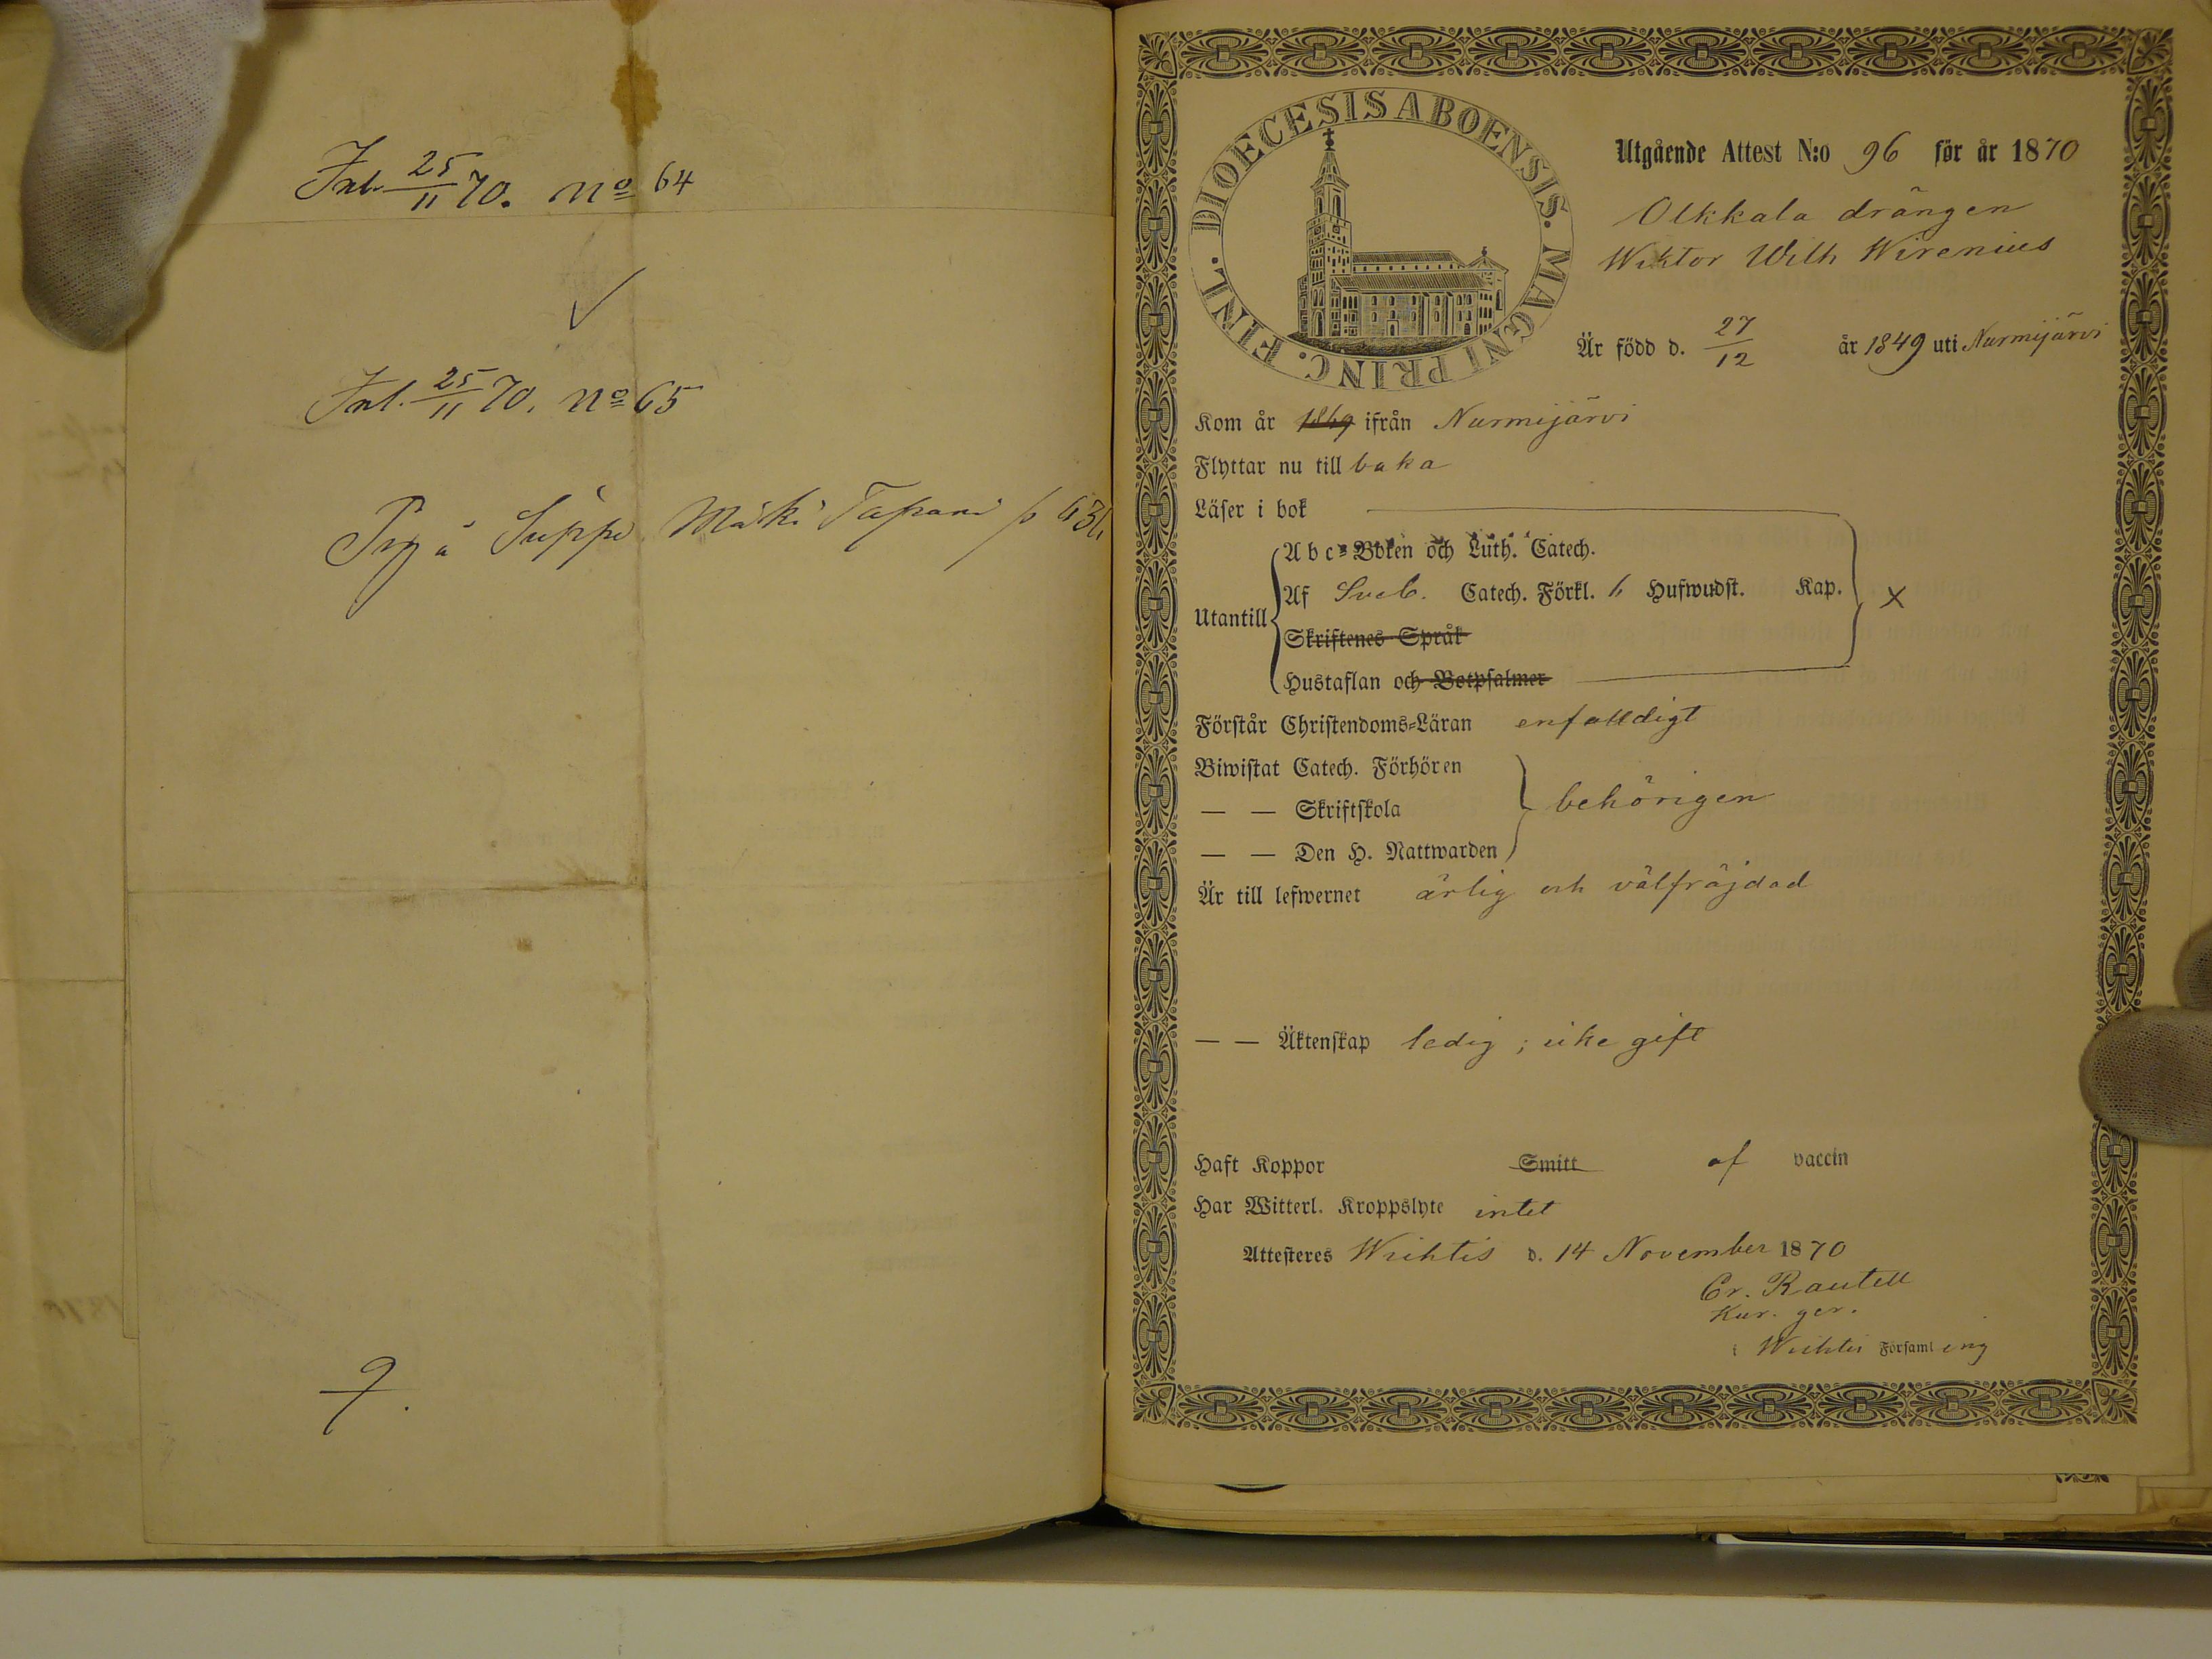 Inl. 25/11 70. No 64
Inl. 25/11 70. No 65
Suppi Mäki Tapani p
9.
DIOECESIS ABOENSIS. MAGNI PRINC. FINL.
Utgående Attest N:o 96 för år 1870
Olkkala drängen
Wiktor Wilh Wirenius
Är född d. 27/12 år 1849 uti Nurmijärvi
Kom år 1869 ifrån Nurmijärvi
Flyttar nu till baka
Läser i bok
Utantill
Abc-Boken och Luth. Catech.
Af Sveb. Catech. Förkl. Hufwudst. Kap. x
Skriftenes Språk
Hustaflan och Botpsalmer
Förstår Christendoms-Läran enfalldigt
Biwistat Catech. Förhören
— — Skriftskola behörigen
— — Den H. Nattwarden
Är till lefwernet ärlig och välfräjdad
— — Äktenskap ledig; icke gift
Haft Koppor Smitt af vaccin
Har Witterl. Kroppslyte intet
Attesteres Wichtis d. 14 November 1870
Cr. Rautell
Kur. ger.
i Wichtis Församling